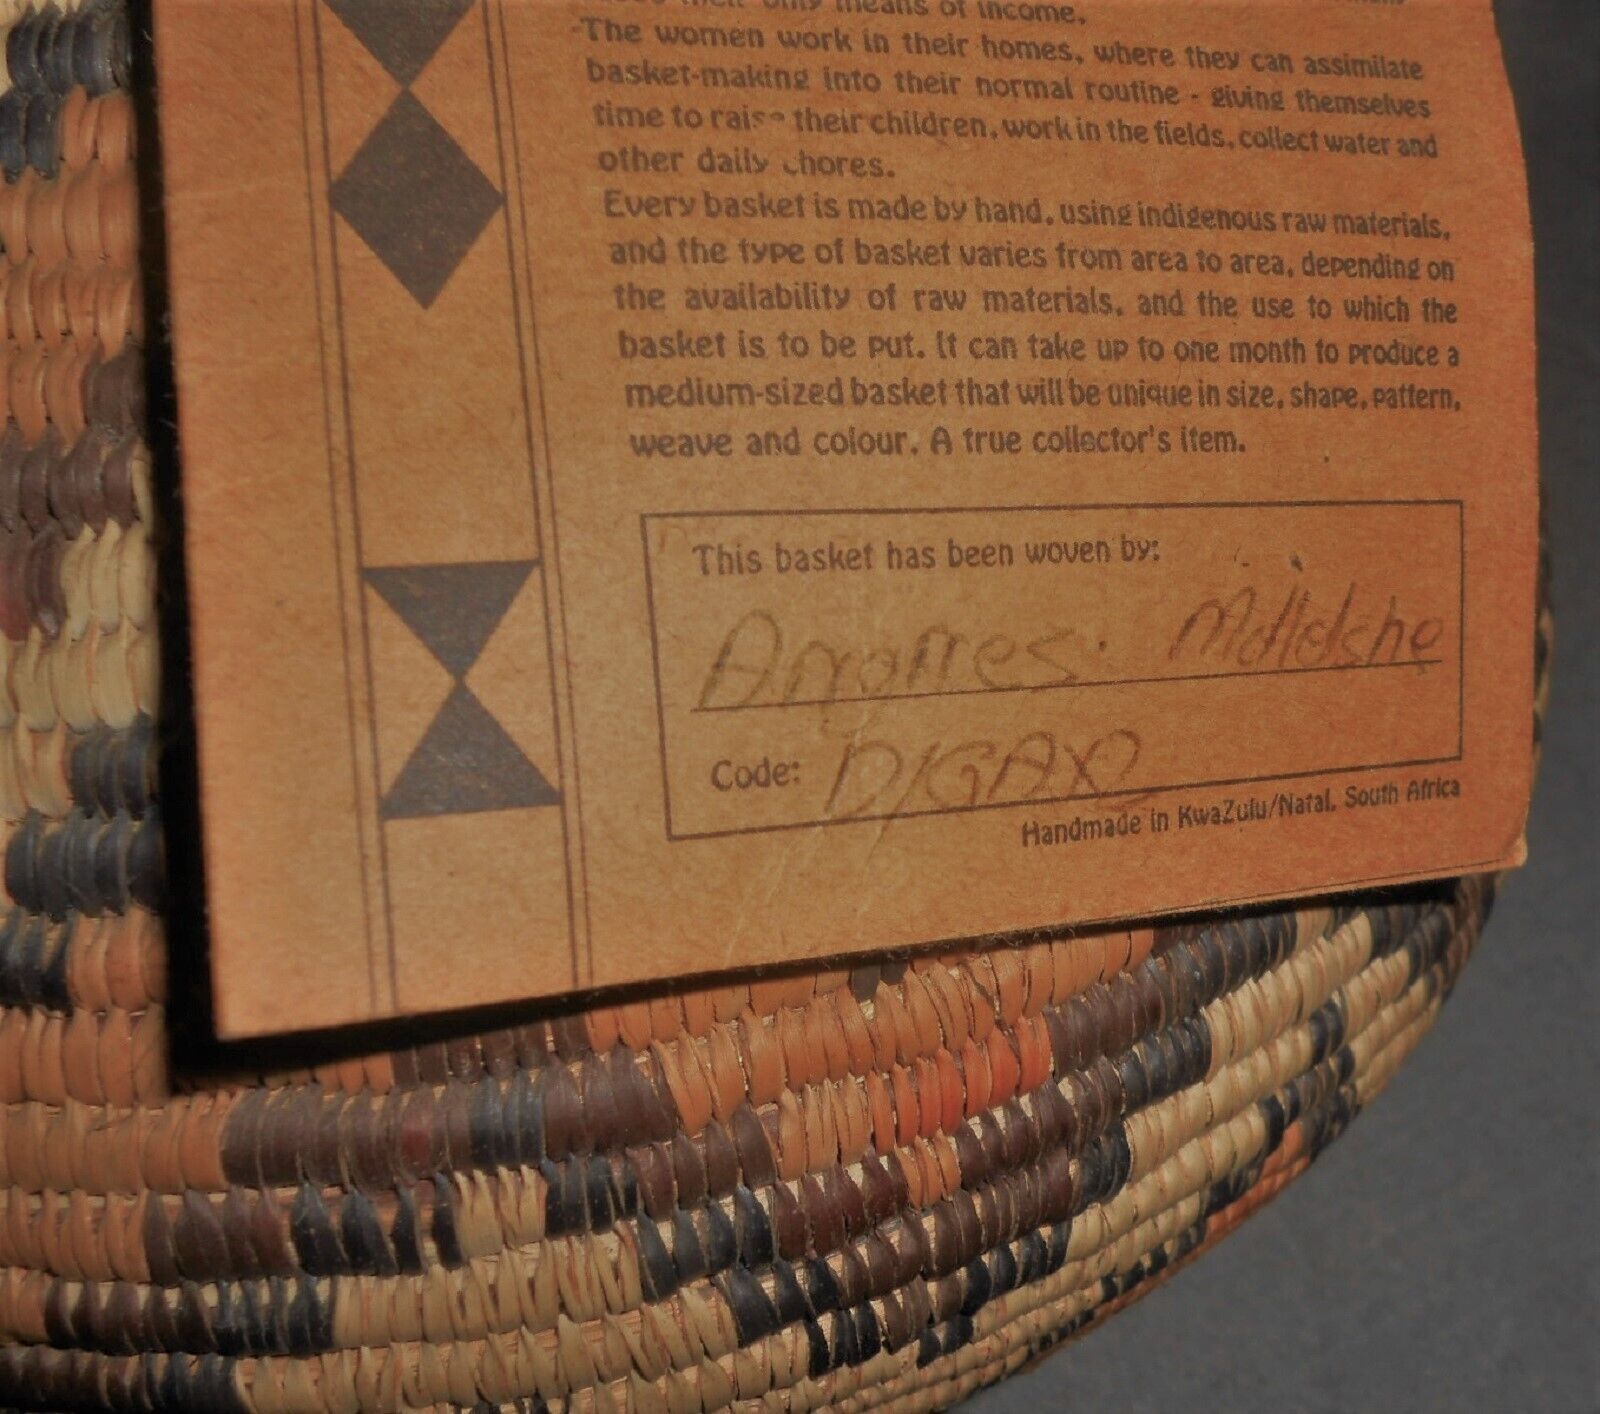 their only means of income.
-The women work in their homes, where they can assimilate
basket-making into their normal routine - giving themselves
time to raise their children, work in the fields, collect water and
other daily chores.
Every basket is made by hand, using indigenous raw materials,
and the type of basket varies from area to area, depending on
the availability of raw materials, and the use to which the
basket is to be put. It can take up to one month to produce a
medium-sized basket that will be unique in size, shape, pattern,
weave and colour. A true collector's item.
This basket has been woven by:
Code:
Handmade in KwaZulu/Natal, South Africa